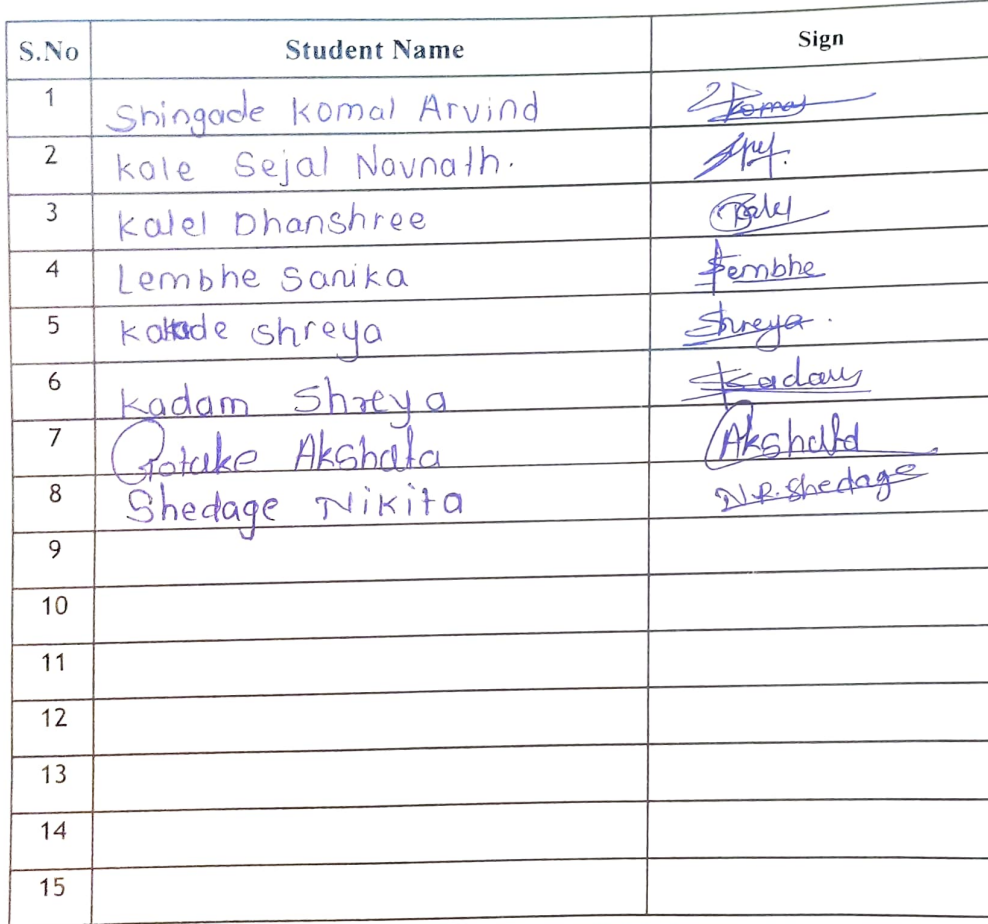 S.No Student Name Sign
1 Shingade Komal Arvind Komal
2 kale Sejal Navnath.
3 Kalel Dhanshree
4 Lembhe Sanika Lembhe
5 shreya Shreya.
6 Kadam Shreya Kadam
7 Gotake Akshata Akshata
8 Shedage Nikita N.R.Shedage
9
10
11
12
13
14
15